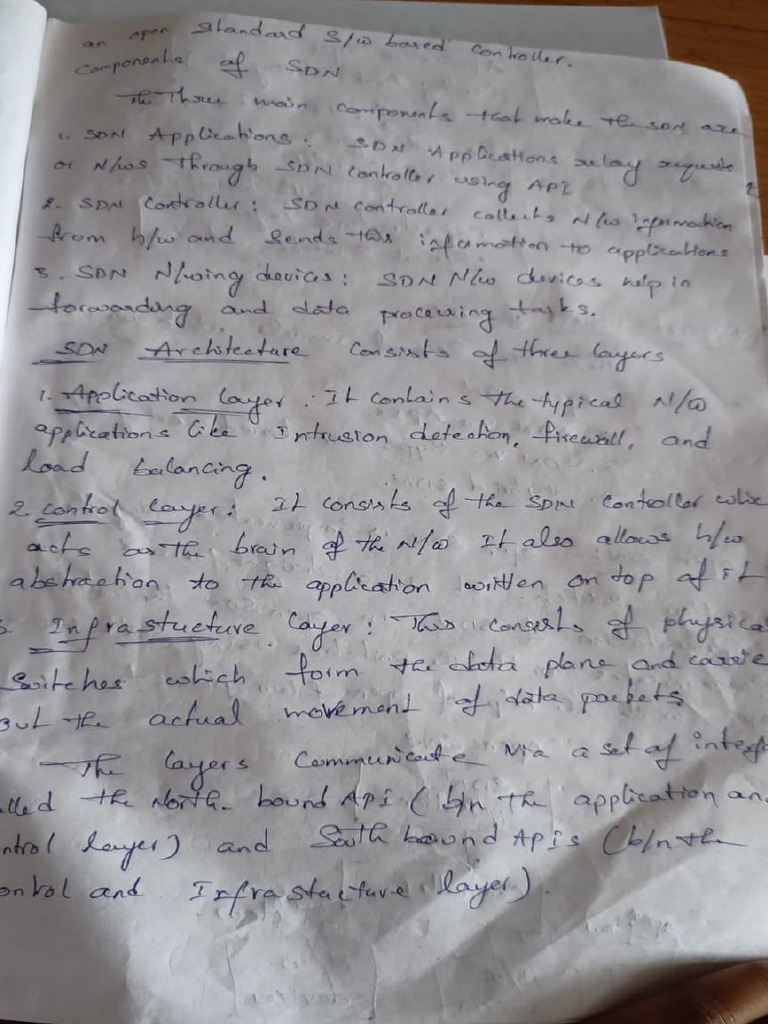 an open standard S/w based controller.
Components of SDN
The Three main components that make the SDN are
1. SDN Applications: SDN Applications relay requests
or N/ws Through SDN Controller using API
2. SDN Controller: SDN controller collects N/w information
from h/w and Sends this information to applications
3. SDN N/wing devices: SDN N/w devices help in
forwarding and data processing tasks.
SDN Architecture Consists of three layers
1. Application layer: It contains the typical N/w
applications like Intrusion detection, firewall, and
load balancing.
2. control layer: It consists of the SDN Controller whic
acts as the brain of the N/w It also allows h/w
abstraction to the application written on top of it
3. Infrastucture layer: This consists of physical
Switches which form the data plane and carrie
out the actual movement of data packets
The layers Communicate via a set of interf
lled the North-bound API (b/n the application an
ntrol layer) and South bound APIs (b/n the
ontrol and Infrastucture layer).